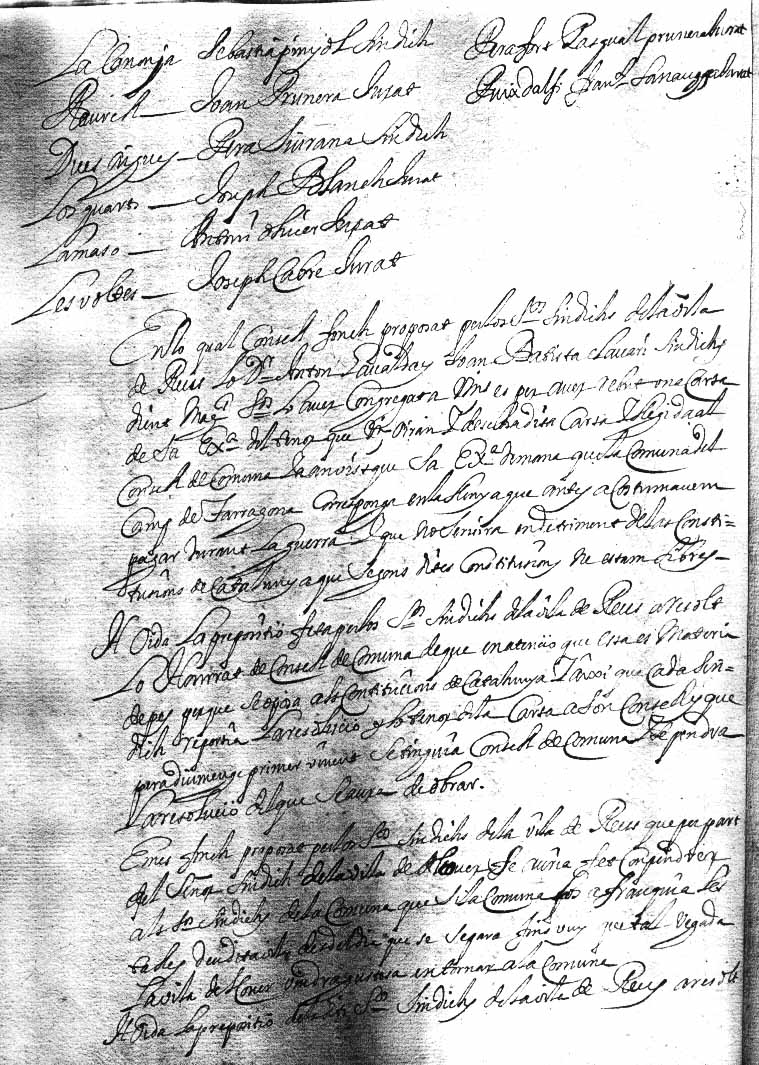 La Canonja Sebastia pinyol Sindich
Perafort Pasqual prunera Jurat
Maurell — Joan Prunera Jurat
Puixdalfi
Dues aigues — Pera Siurana Sindich
Los quarts — Joseph Blanch Jurat
Lamaso — Antoni oliver Jurat
Les voltes — Joseph Cabre Jurat
En lo qual Consell fonch proposat per los Srs Sindichs de la vila
de Reus Lo Dr Anton y Joan Batista Sindichs
dient Lo aver Congregata es per aver rebut una Carta
de Sa Exa del tenor que oiran Y dita Carta Y llegida al
Consell de Comuna Y an vist que Sa Exa demana que la Comuna del
Camp de Tarragona Corresponga en la llenya que antes acostumaven
pagar durant La guerra Y que no Servira en detriment de las Consti=
tusions de Catalunya que Segons dites Constitusions ne estam llibres—
Oida La propositio feta per los Srs Sindichs de la vila de Reus aresolt
Lo Honrrat de Consell de Comuna de que en atencio que esta es Materia
de pes perque Se oposa als Constitucions de Catalunya Y axi que Cada Sin=
dich reportia La resolucio y lo tenor de la Carta a Son Consell y que
para diumenge primer vinent Se tinguia Consell de Comuna Y se pendra
La resolucio del que Se aura de obrar.
E mes fonch proposat per los Srs Sindichs de la vila de Reus que per part
del Señor Sindich de la vila de Alcover Se avia fet Conpendrer
als Srs Sindichs de la Comuna que Si la Comuna los a franquia les
talles de dita vila desdel dia que se Segara fins vuy que tal vegada
La vila de Alcover vindra gustosa en tornar a la Comuna
Oida La propositio dels dits Srs Sindichs de la vila de Reus aresolt